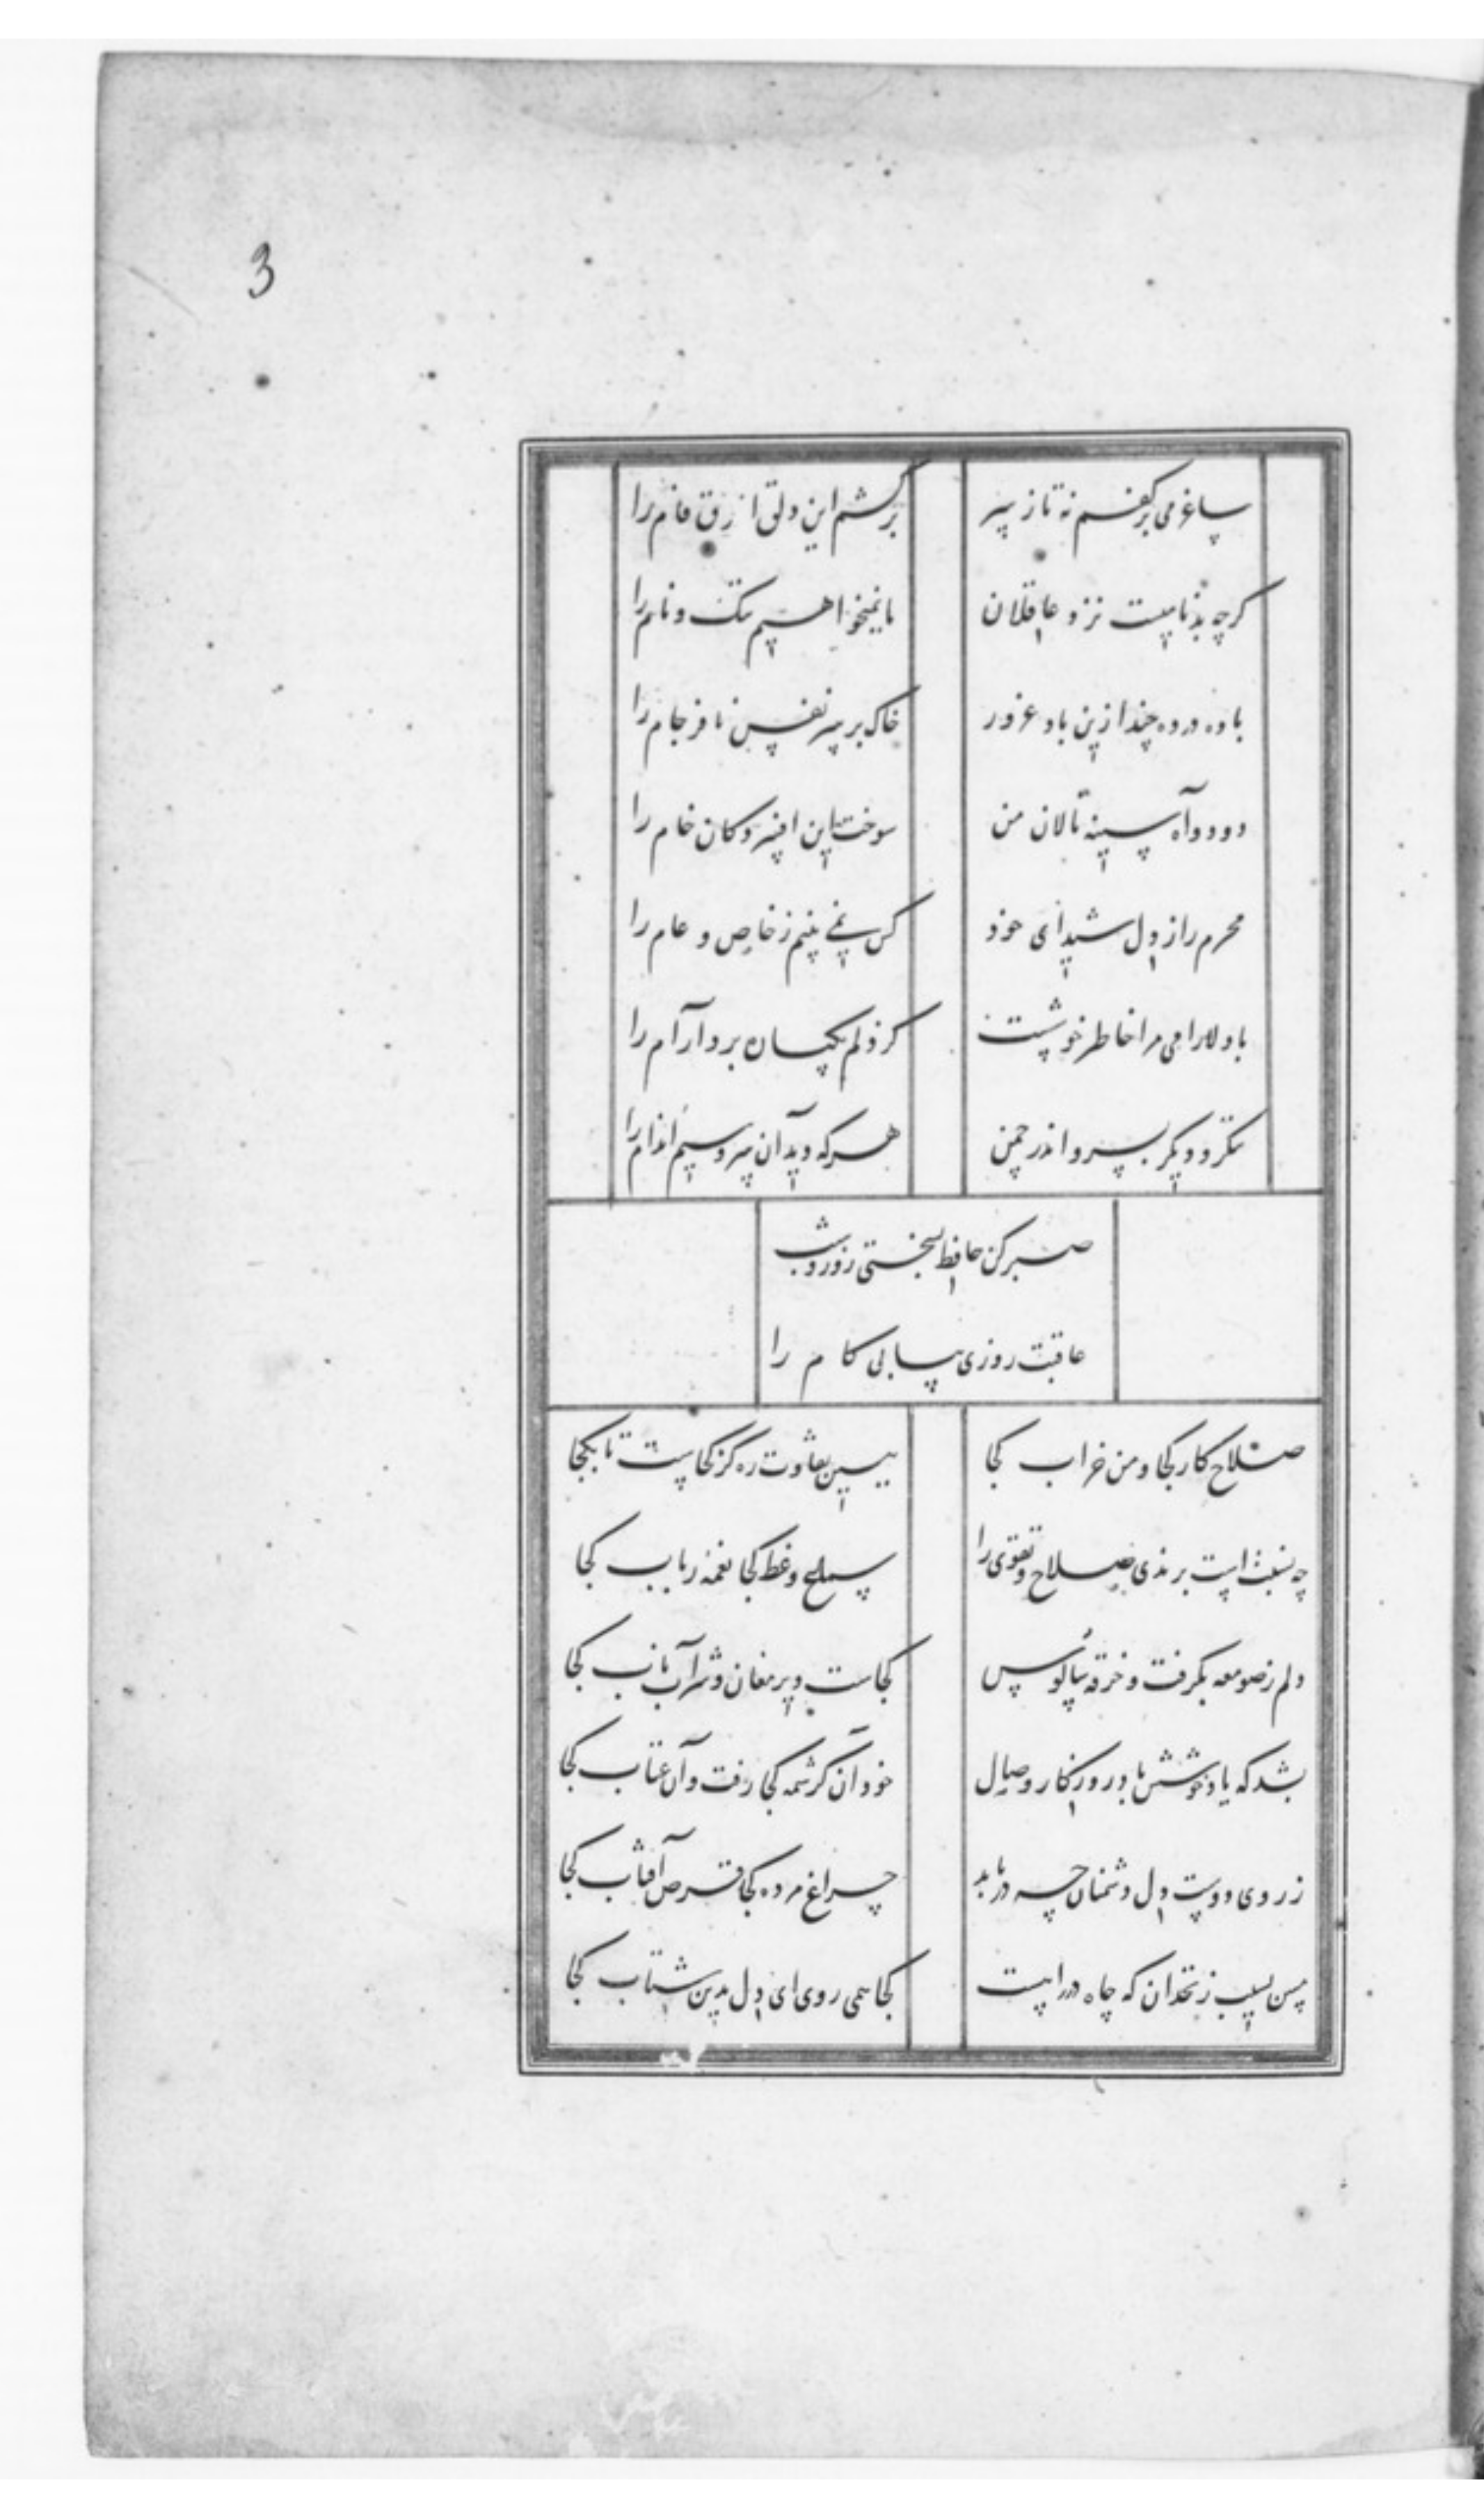 3
ساغر می بر کفم نه تا ز سر
برکشم این دلق ازرق فام را
گرچه بدنامیست نزد عاقلان
ما نمیخواهیم ننگ و نام را
باده درده چند ازین باد غرور
خاک بر سر نفس نافرجام را
دود و آه سینه نالان من
سوخت این افسردگان خام را
محرم راز دل شیدای خود
کس نمی بینم ز خاص و عام را
با دلارامی مرا خاطر خوشست
کز دلم یکسان برد آرام را
ننگرد دیگر بسرو اندر چمن
هرکه دید آن سرو سیم اندام را
صبر کن حافظ بسختی روز و شب
عاقبت روزی بیابی کام را
صلاح کار کجا و من خراب کجا
ببین تفاوت ره کز کجاست تا بکجا
چه نسبت است برندی صلاح و تقوی را
سماع وعظ کجا نغمه رباب کجا
دلم ز صومعه بگرفت و خرقه سالوس
کجاست دیر مغان و شراب ناب کجا
بشد که یاد خوشش باد روزگار وصال
خود آن کرشمه کجا رفت و آن عتاب کجا
ز روی دوست دل دشمنان چه دریابد
چراغ مرده کجا قرص آفتاب کجا
مبین بسیب زنخدان که چاه در راهست
کجا همی روی ای دل بدین شتاب کجا